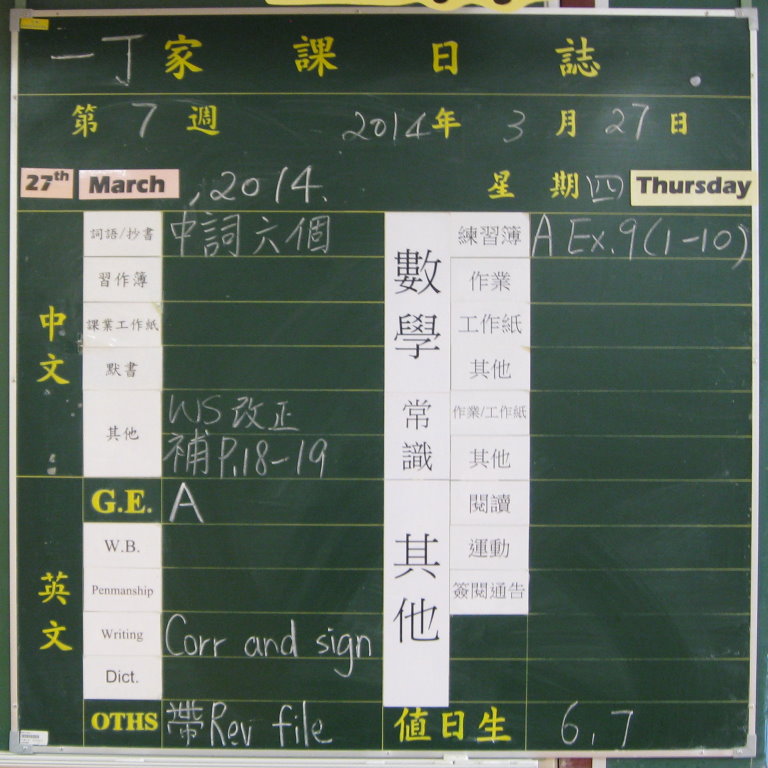 一丁家課日誌
第7週 2014年3月27日
27th March, 2014. 星期四 Thursday
中文
詞語/抄書 中詞六個
習作簿
課業工作紙
默書
其他 WS改正
補P.18-19
英文
G.E. A
W.B.
Penmanship
Writing Corr and sign
Dict.
OTHS 帶Rev file
數學
練習簿 A Ex.9(1-10)
作業
工作紙
其他
常識
作業/工作紙
其他
其他
閱讀
運動
簽閱通告
值日生 6,7